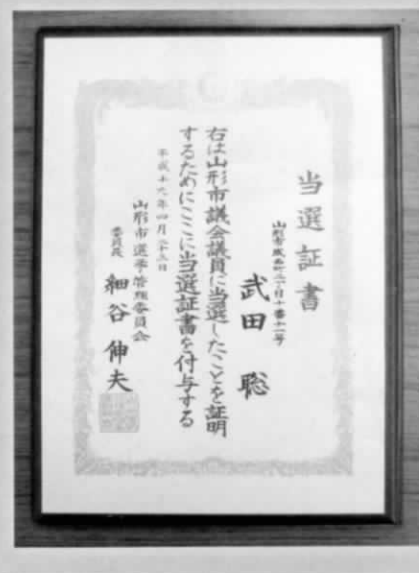 当選証書
山形市城西町三丁目十番十一号
武田聡
右は山形市議会議員に当選したことを証明
するためにここに当選証書を付与する
平成十九年四月二十三日
山形市選挙管理委員会
委員長 細谷伸夫